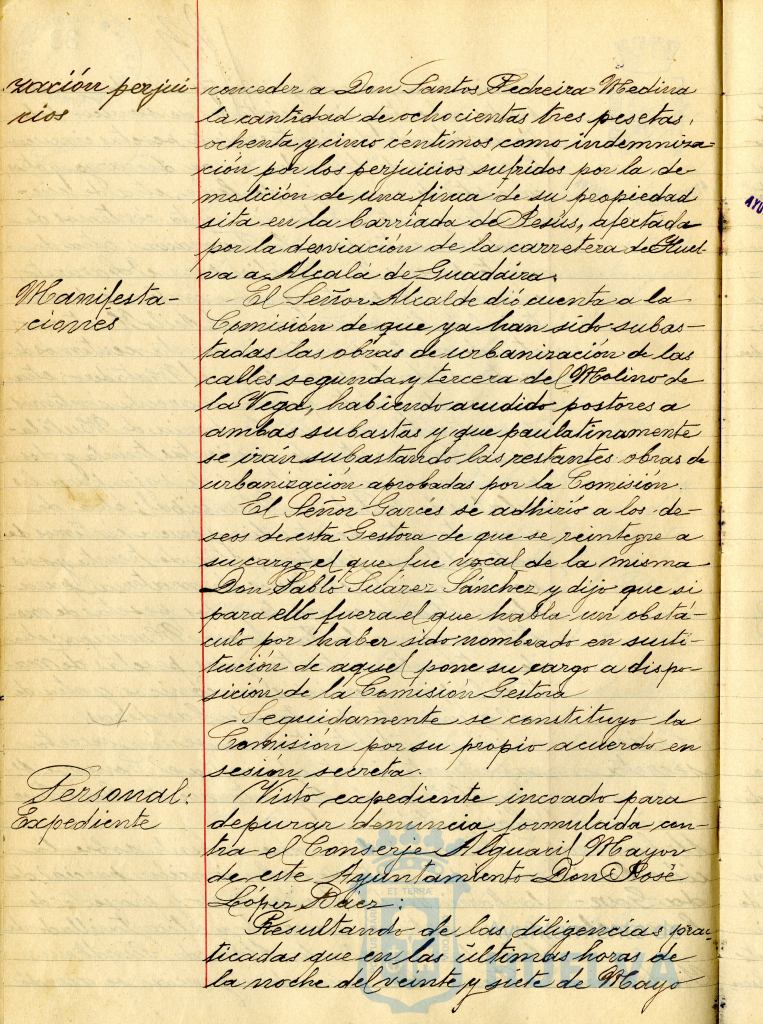 zación perjui-
cios
conceder a Don Santos Pedreira Medina
la cantidad de ochocientas tres pesetas,
ochenta y cinco céntimos como indemniza-
ción por los perjuicios sufridos por la de
molición de una finca de su propiedad
sita en la barriada de Jesús, afectada
por la desviación de la carretera de Huel-
va a Alcalá de Guadaira.
Manifesta-
ciones
El Señor Alcalde dió cuenta a la
Comisión de que ya han sido subas-
tadas las obras de urbanización de las
calles segunda y tercera del Molino de
la Vega, habiendo acudido postores a
ambas subastas y que paulatinamente
se iran subastando las restantes obras de
urbanización aprobadas por la Comisión.
El Señor Garces se adhirió a los de-
seos de esta Gestora de que se reintegre a
su cargo el que fue vocal de la misma
Don Pablo Suárez Sánchez y dijo que si
para ello fuera el que habla un obstá-
culo por haber sido nombrado en susti-
tución de aquel pone su cargo a dispo-
sición de la Comisión Gestora
Seguidamente se constituyo la
Comisión por su propio acuerdo en
sesión secreta.
Personal:
Expediente
Visto expediente incoado para
depurar denuncia formulada con-
tra el Conserje Alguaril Mayor
de este Ayuntamiento Don José
López Báez:
Resultando de las diligencias prac-
ticadas que en las últimas horas de
la noche del veinte y siete de Mayo
AYU
ET TERRA